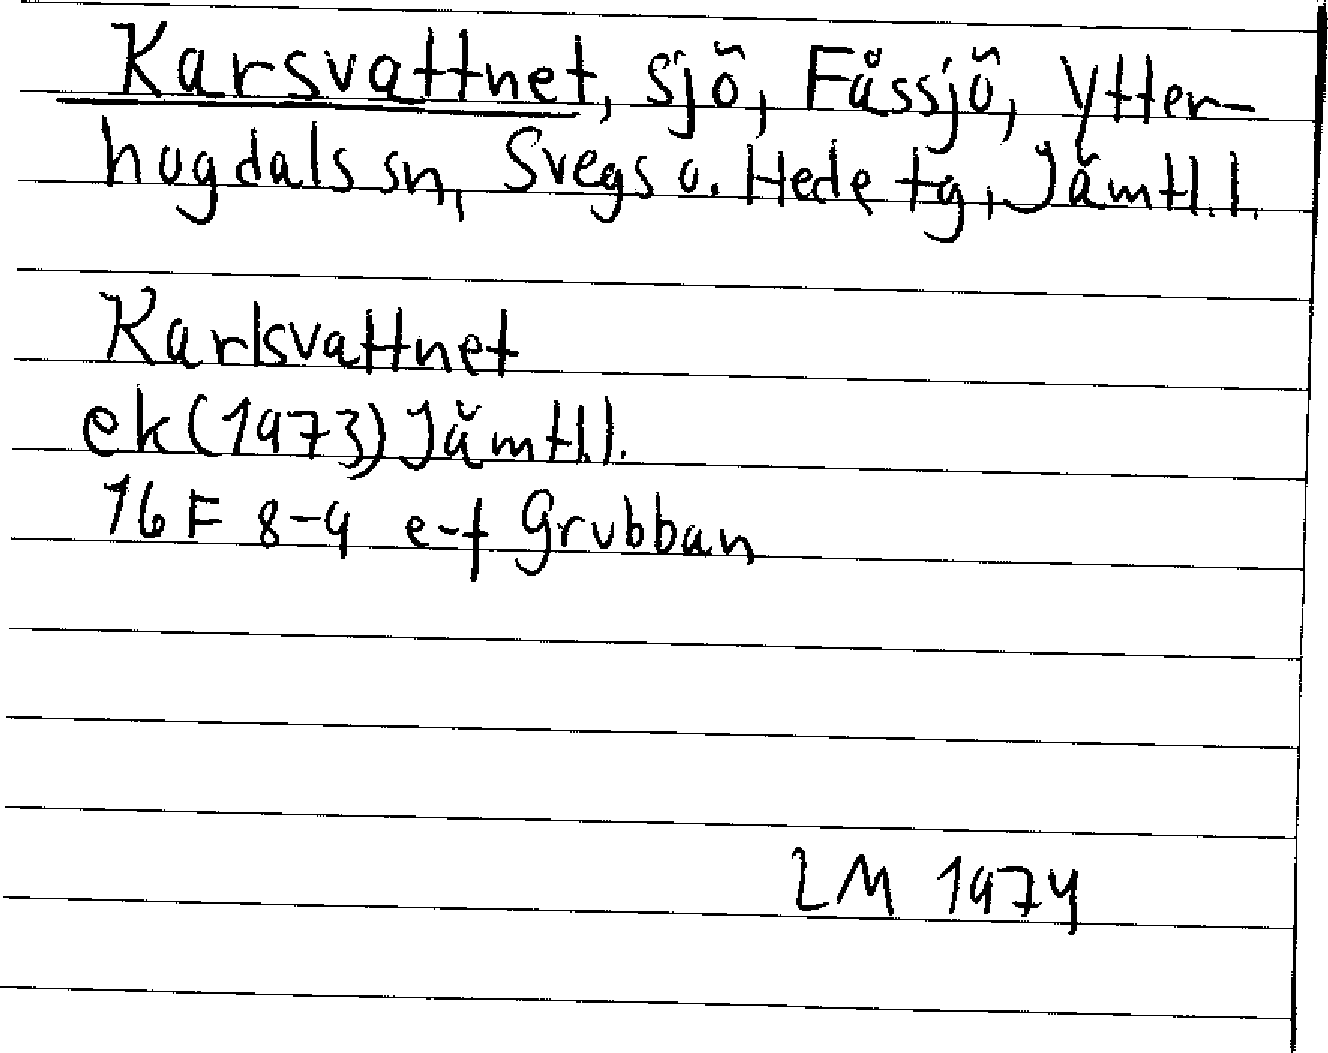 Karsvattnet, sjö, Fåssjö, Ytter-
hogdals sn, Svegs o. Hede tg, Jämtl.l.
Karlsvattnet
ek (1973) Jämtl.l.
16 F 8-9 e-f Grubban
LM 1974